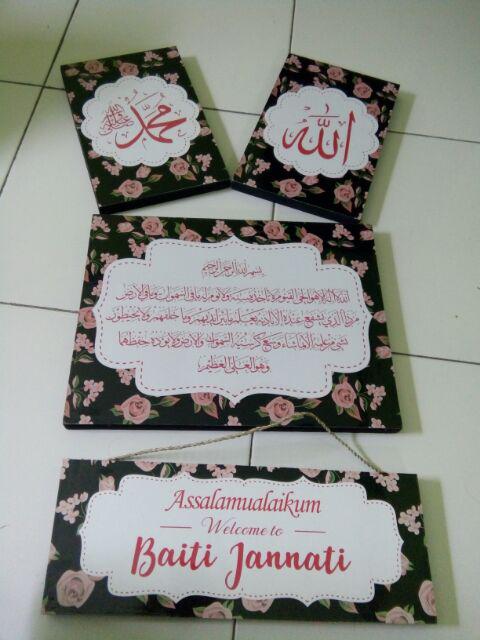 محمد
الله
بسم الله الرحمن الرحيم
الله لا إله إلا هو الحي القيوم لا تأخذه سنة ولا نوم له ما في السموات وما في الأرض
من ذا الذي يشفع عنده إلا بإذنه يعلم ما بين أيديهم وما خلفهم ولا يحيطون
بشيء من علمه إلا بما شاء وسع كرسيه السموات والأرض ولا يؤده حفظهما
وهو العلي العظيم
Assalamualaikum
Welcome to
Baiti Jannati